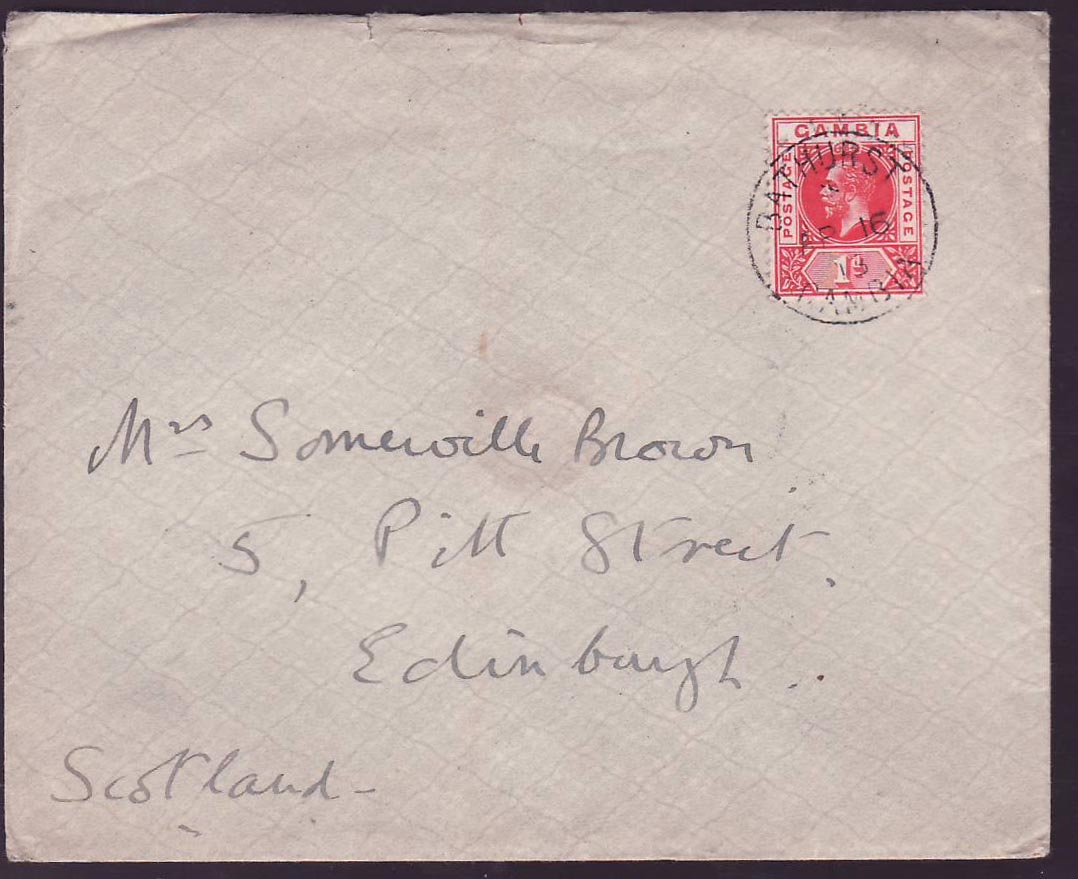 GAMBIA
POSTAGE
POSTAGE
1d
BATHURST
AP 16
13
GAMBIA
Mrs Somerville Brown
5, Pitt Street.
Edinburgh.
Scotland-